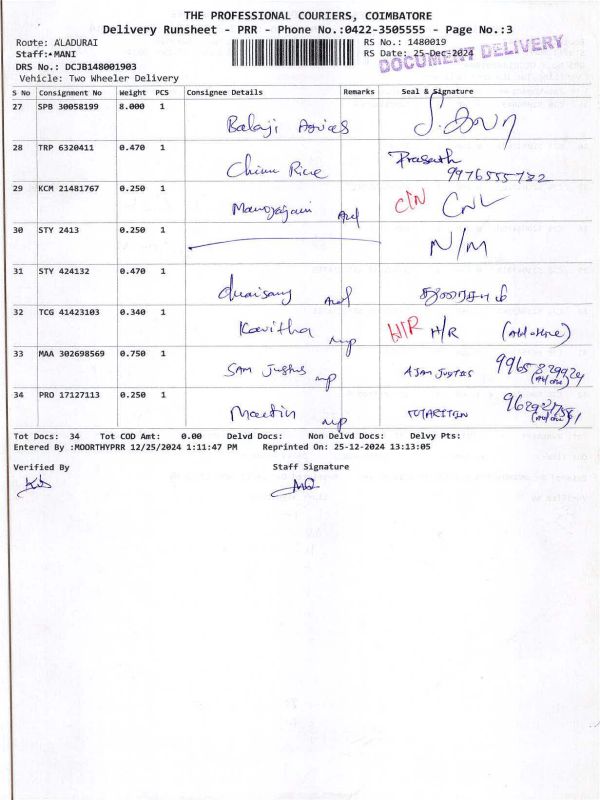 THE PROFESSIONAL COURIERS, COIMBATORE
Delivery Runsheet - PRR - Phone No.:0422-3505555 - Page No.:3
Route: ALADURAI RS No.: 1480019
Staff: MANI RS Date: 25-Dec-2024
DOCUMENT DELIVERY
DRS No.: DCJB148001903
Vehicle: Two Wheeler Delivery
S No Consignment No Weight PCS Consignee Details Remarks Seal & Signature
27 SPB 30058199 8.000 1 Balaji
28 TRP 6320411 0.470 1 Prasath 9976555732
29 KCM 21481767 0.250 1 C/N CNL
30 STY 2413 0.250 1 N/M
31 STY 424132 0.470 1 துரைசாமி
32 TCG 41423103 0.340 1 Kavitha H/R H/R
33 MAA 302698569 0.750 1 SAM Justus
34 PRO 17127113 0.250 1 Martin
Tot Docs: 34 Tot COD Amt: 0.00 Delvd Docs: Non Delvd Docs: Delvy Pts:
Entered By :MOORTHYPRR 12/25/2024 1:11:47 PM Reprinted On: 25-12-2024 13:13:05
Verified By Staff Signature